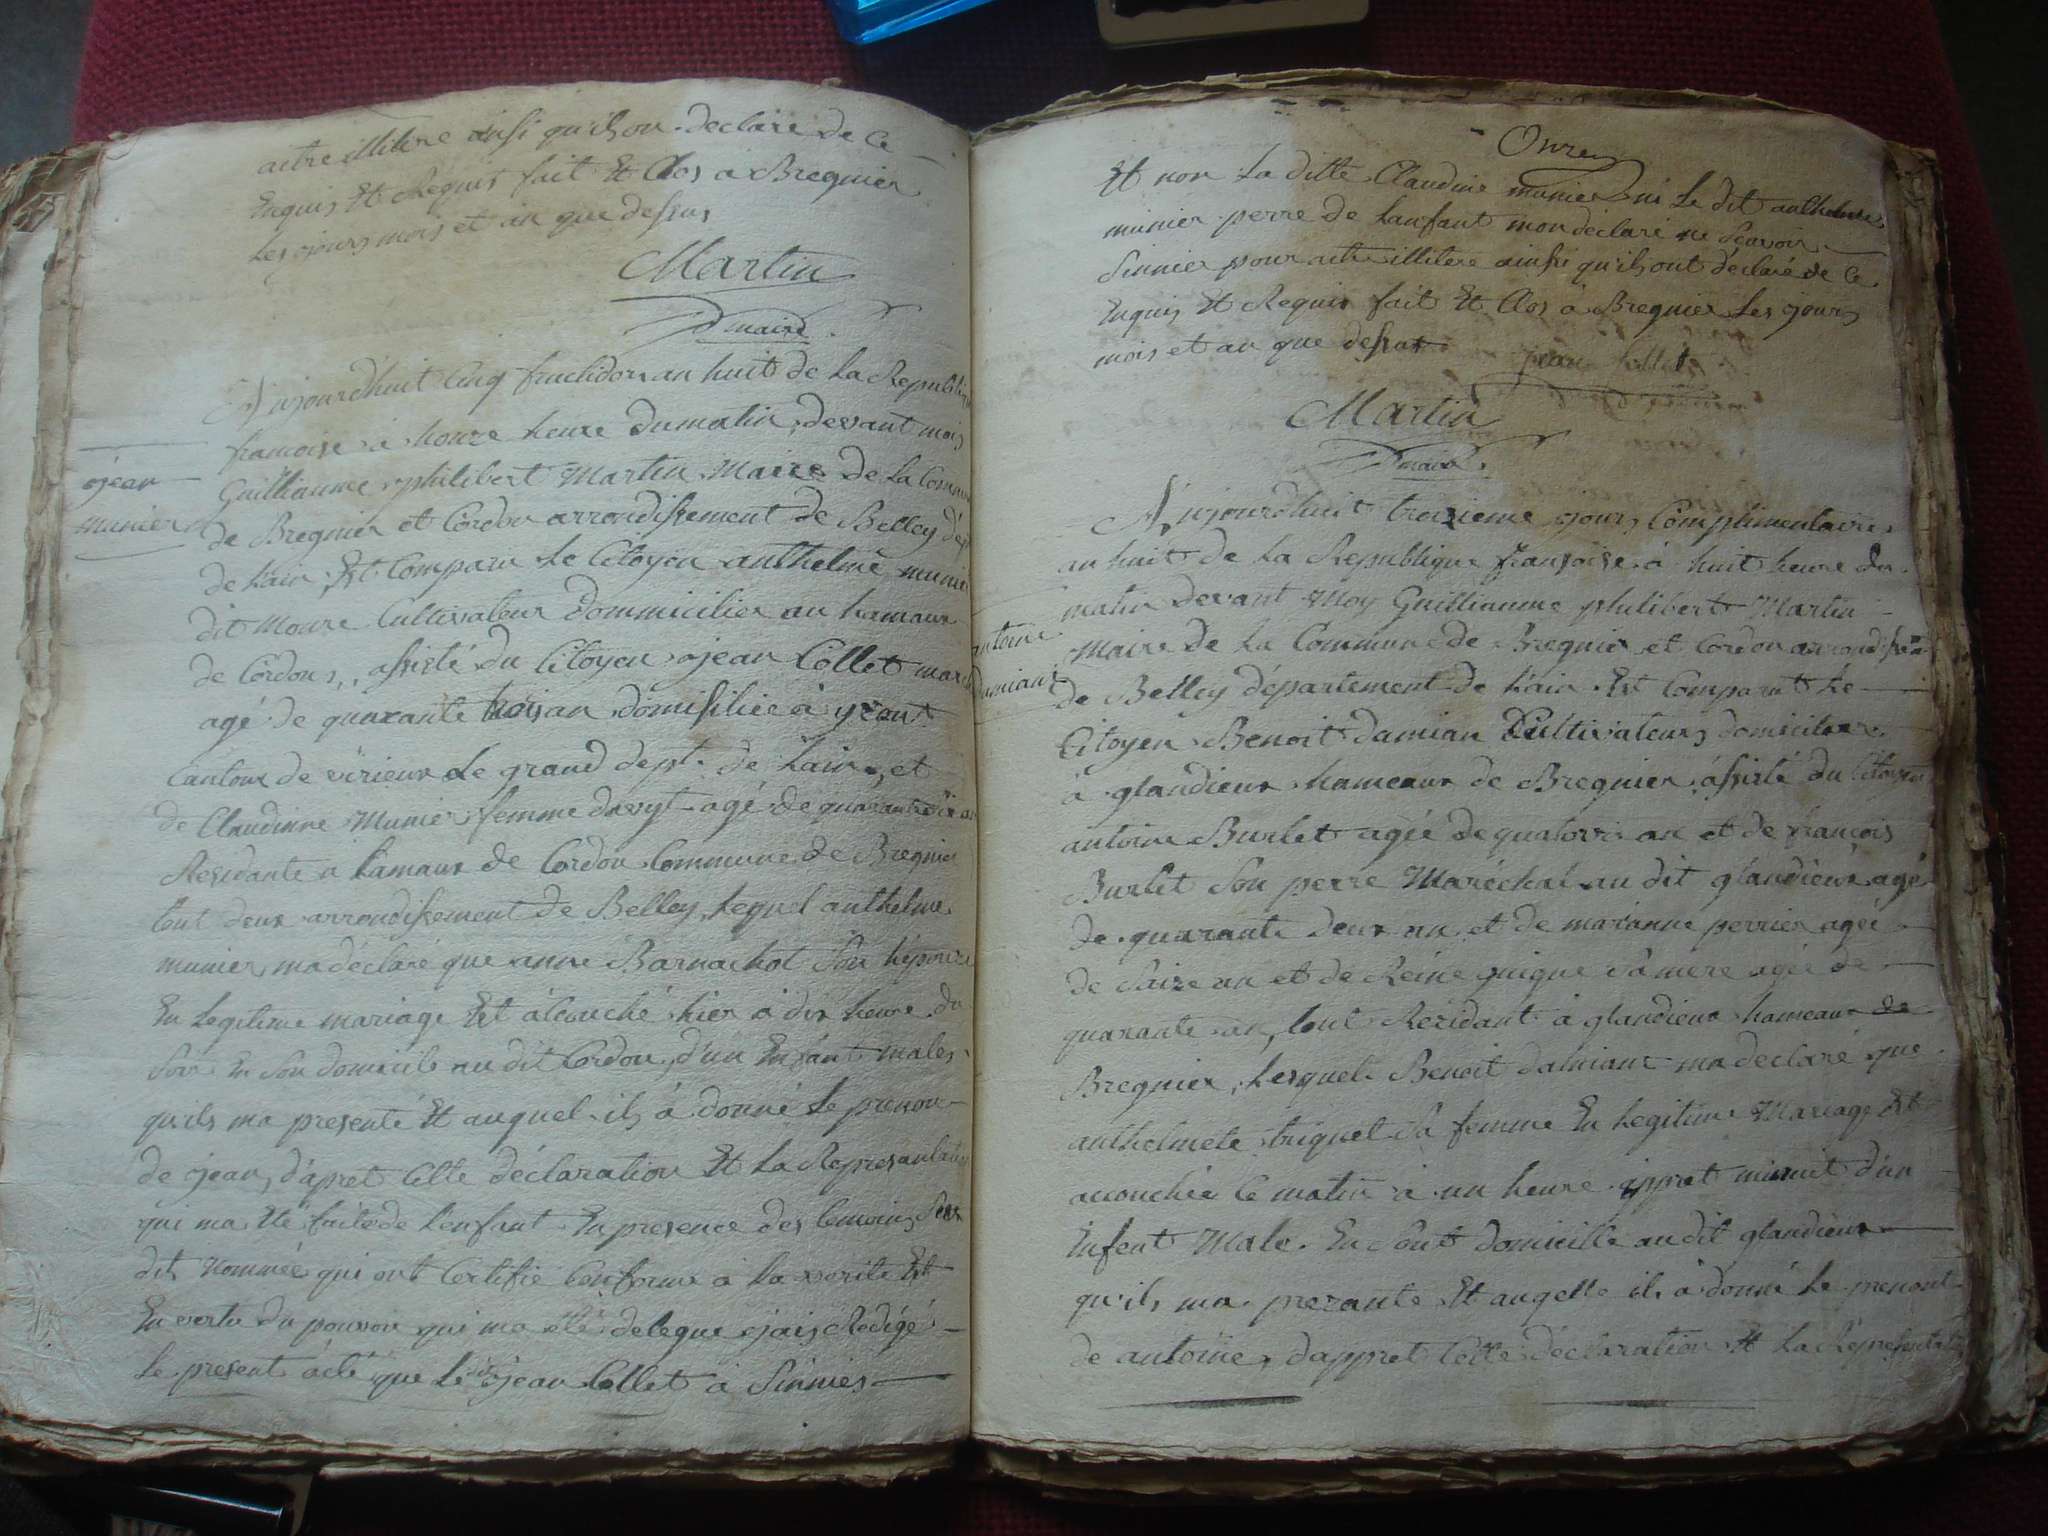 aitre illitere ainsi qu'ils on declaré de ce
Enquis Et Requis fait Et Clos à Bregnier
Les jours mois et an que dessus
Martin
maire
Aujourdhuit Cinq fructidor an huit de La Republique
francoise à honze heure du matin, devant mois
Guilliaume philibert Martin Maire de La Commune
de Bregnier et Cordon arrondissement de Belley dépt
de Lain, Est Comparu Le Citoyen anthelme munier
dit Moure Cultivateur dommicilier au hamaux
de Cordons, assisté du Citoyen jean Collet
agé de quarante trois an domisiliée à
Cantont de virieux Le grand dept. de Lain, et
de Claudinne Munier femme davyt agé de quarante
Residante a hamaux de Cordon Commune de Bregnier
tout deux arrondissement de Belley, Lequel anthelme
munier, ma déclaré que anne Barnachot Son hépouze
En Legitime mariage Est àcouché hier à dix heure du
Soir En Son domicile au dit Cordon, d'un Enfant males
qu'ils ma presenté Et auquel ils à donné Le prenom
de jean, d'apret Cette déclaration Et La Representation
qui ma été faite de l'enfant En presence des temoins Sus
dit Nommée qui ont Certifié Conforme à La verité Est
En vertu du pouvoir qui ma été delegue jais Redigé
Le present acte que Le dit jean Collet à Sinnies
jean
munier
Onze
Et non La ditte Claudine munier ni Le dit anthelme
munier perre de Lanfant mon déclaré ne Scavoir
Sinnier pour aitre illitere ainsi qu'ils ont déclaré de ce
Enquis Et Requis fait Et Clos à Bregnier Les jours
mois et an que dessus
jean Collet
Martin
maire
Aujourdhuit troizieme jours Complimentaire
an huit de La Republique françoise à huit heure du
matin devant Moy Guilliaume philibert Martin
Maire de La Commune de Bregnier et Cordon arrondissem
de Belley département de Lain Est Comparut Le
Citoyen Benoit damian Cultivateurs domicilier
à glandieux hameaux de Bregnier assisté du Citoyen
antoine Burlet agée de quatorze an et de françois
Burlet Son perre Maréchal au dit glandieux agé
de quarante deux an et de marianne perrier agée
de Saize an et de Reine guigue Sa mere agée de
quarante an, tout Residant à glandieux hameaux de
Bregnier, Lesquel Benoit damiant ma déclaré que
anthelmete triquet Sa femme En Legitime Mariage Est
acouchée Ce matin à un heure appret minuit d'un
Enfent Male. En Sont domicille au dit glandieux
qu'ils ma prezante Et auqelle ils à donné Le prenont
de antoine, d'appret Cette déclaration Et La Representation
antoine
damiant